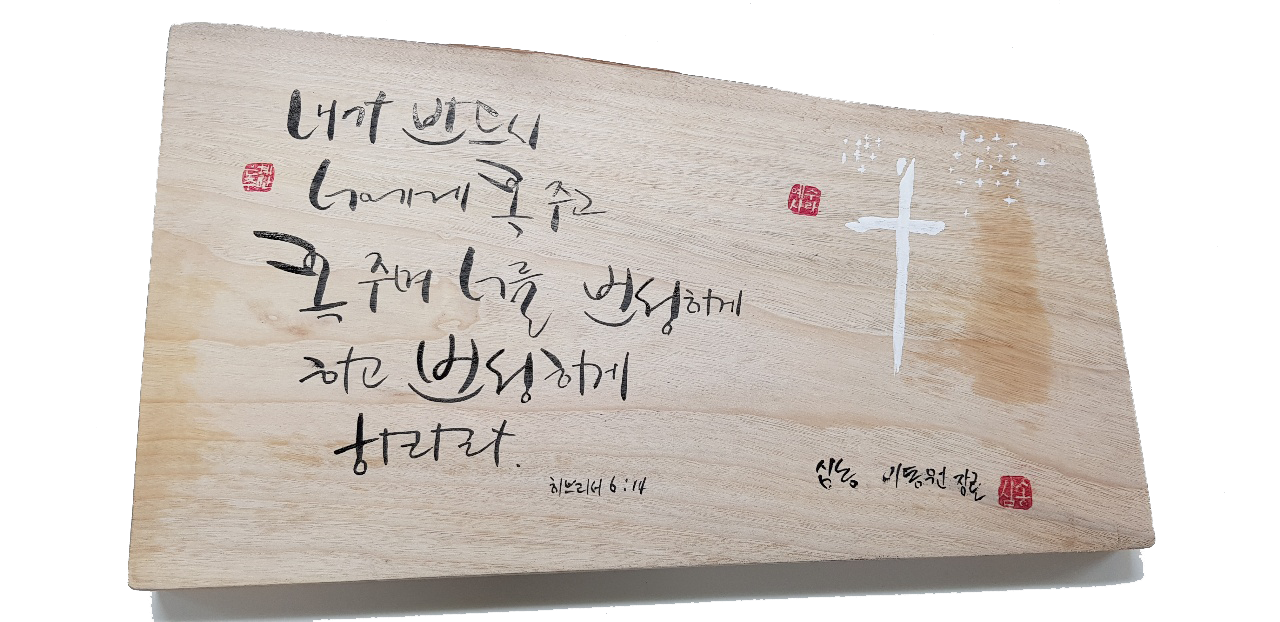 내가 반드시
너에게 복 주고
복 주며 너를 번성하게
하고 번성하게
하리라.
히브리서 6:14
예수
사랑
이동원 장로